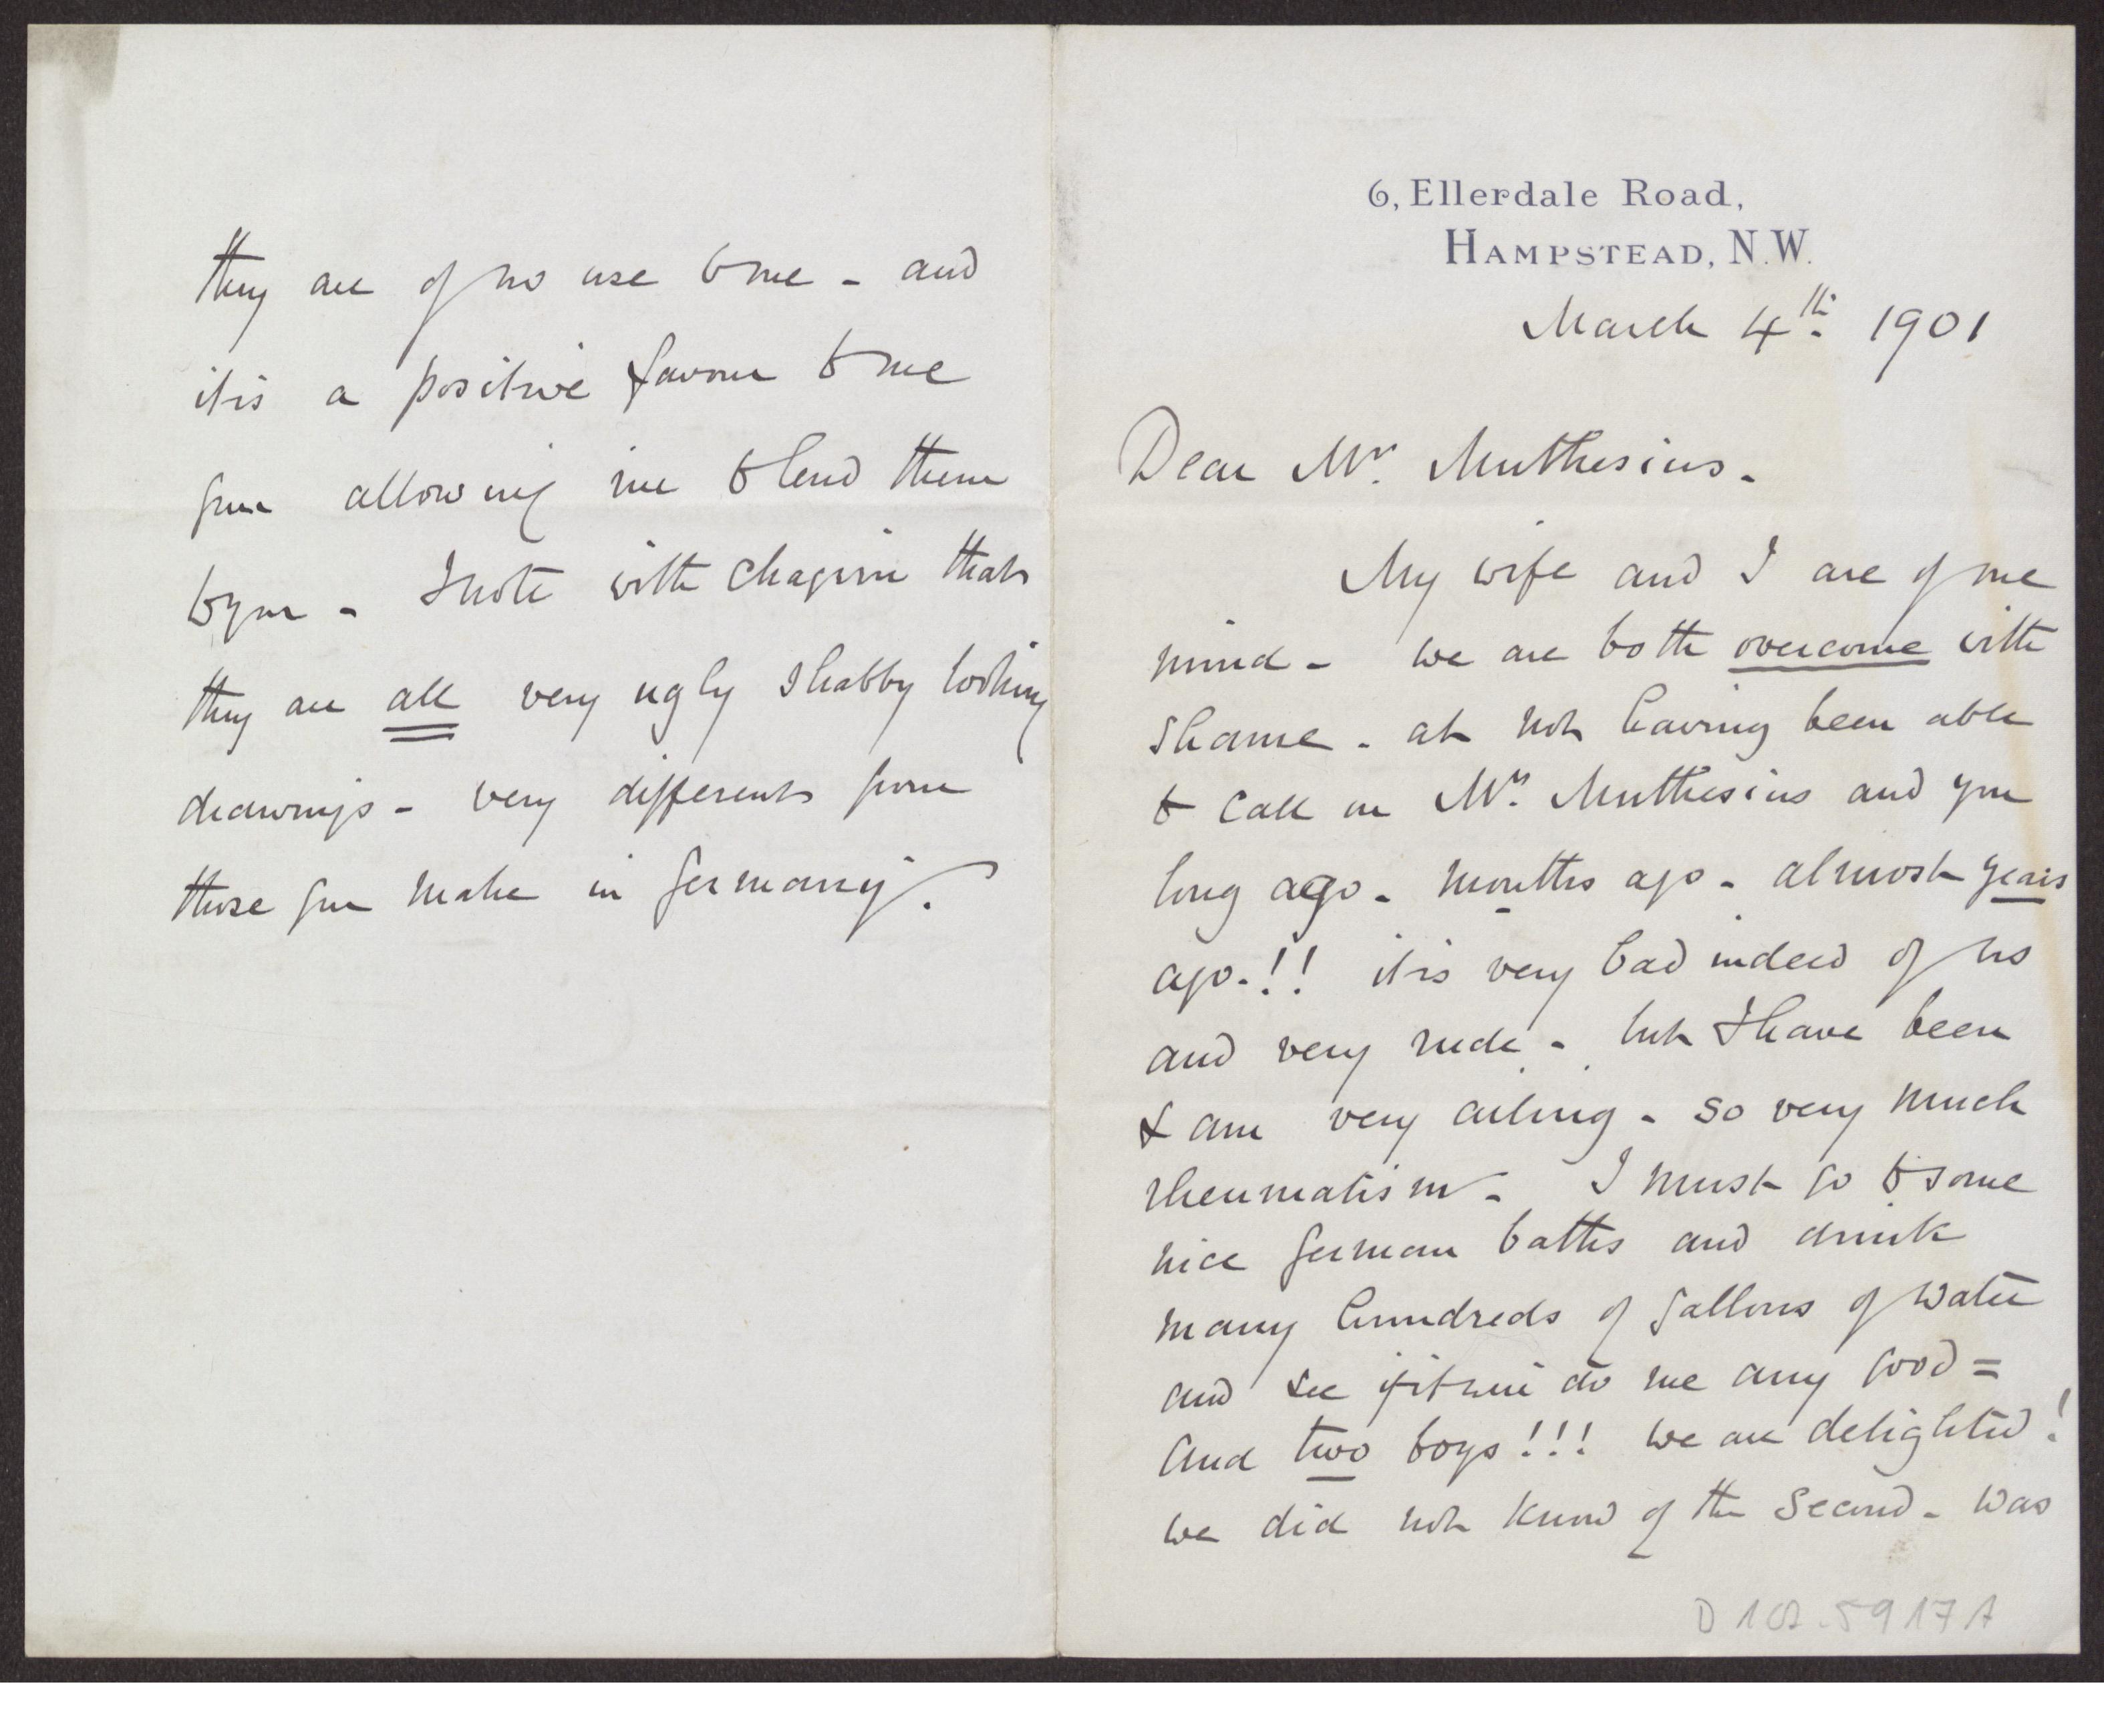 6, Ellerdale Road,
HAMPSTEAD, N.W.
March 4th. 1901
Dear Mr. Muthesius.
My wife and I are of one
mind - we are both overcome with
shame - at not having been able
to call on Mrs. Muthesius and you
long ago - months ago - almost years
ago - !! it is very bad indeed of us
and very rude - but I have been
& am very ailing - so very much
rheumatism - I must go to some
nice German baths and drink
many hundreds of gallons of water
and see if it will do me any good =
And two boys !!! we are delighted !
we did not know of the second - was
D 102-5917A
they are of no use to me - and
it is a positive favour to me
your allowing me to lend them
to you - I note with chagrin that
they are all very ugly shabby looking
drawings - very different from
those you make in Germany.